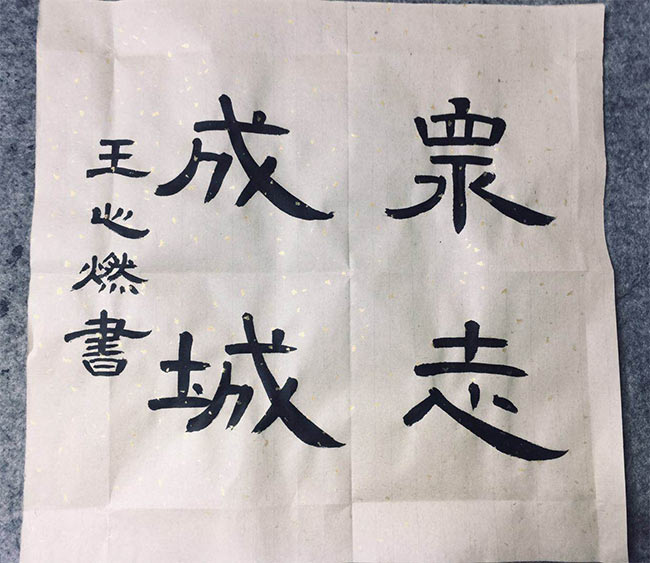 眾志
成城
王心燃書